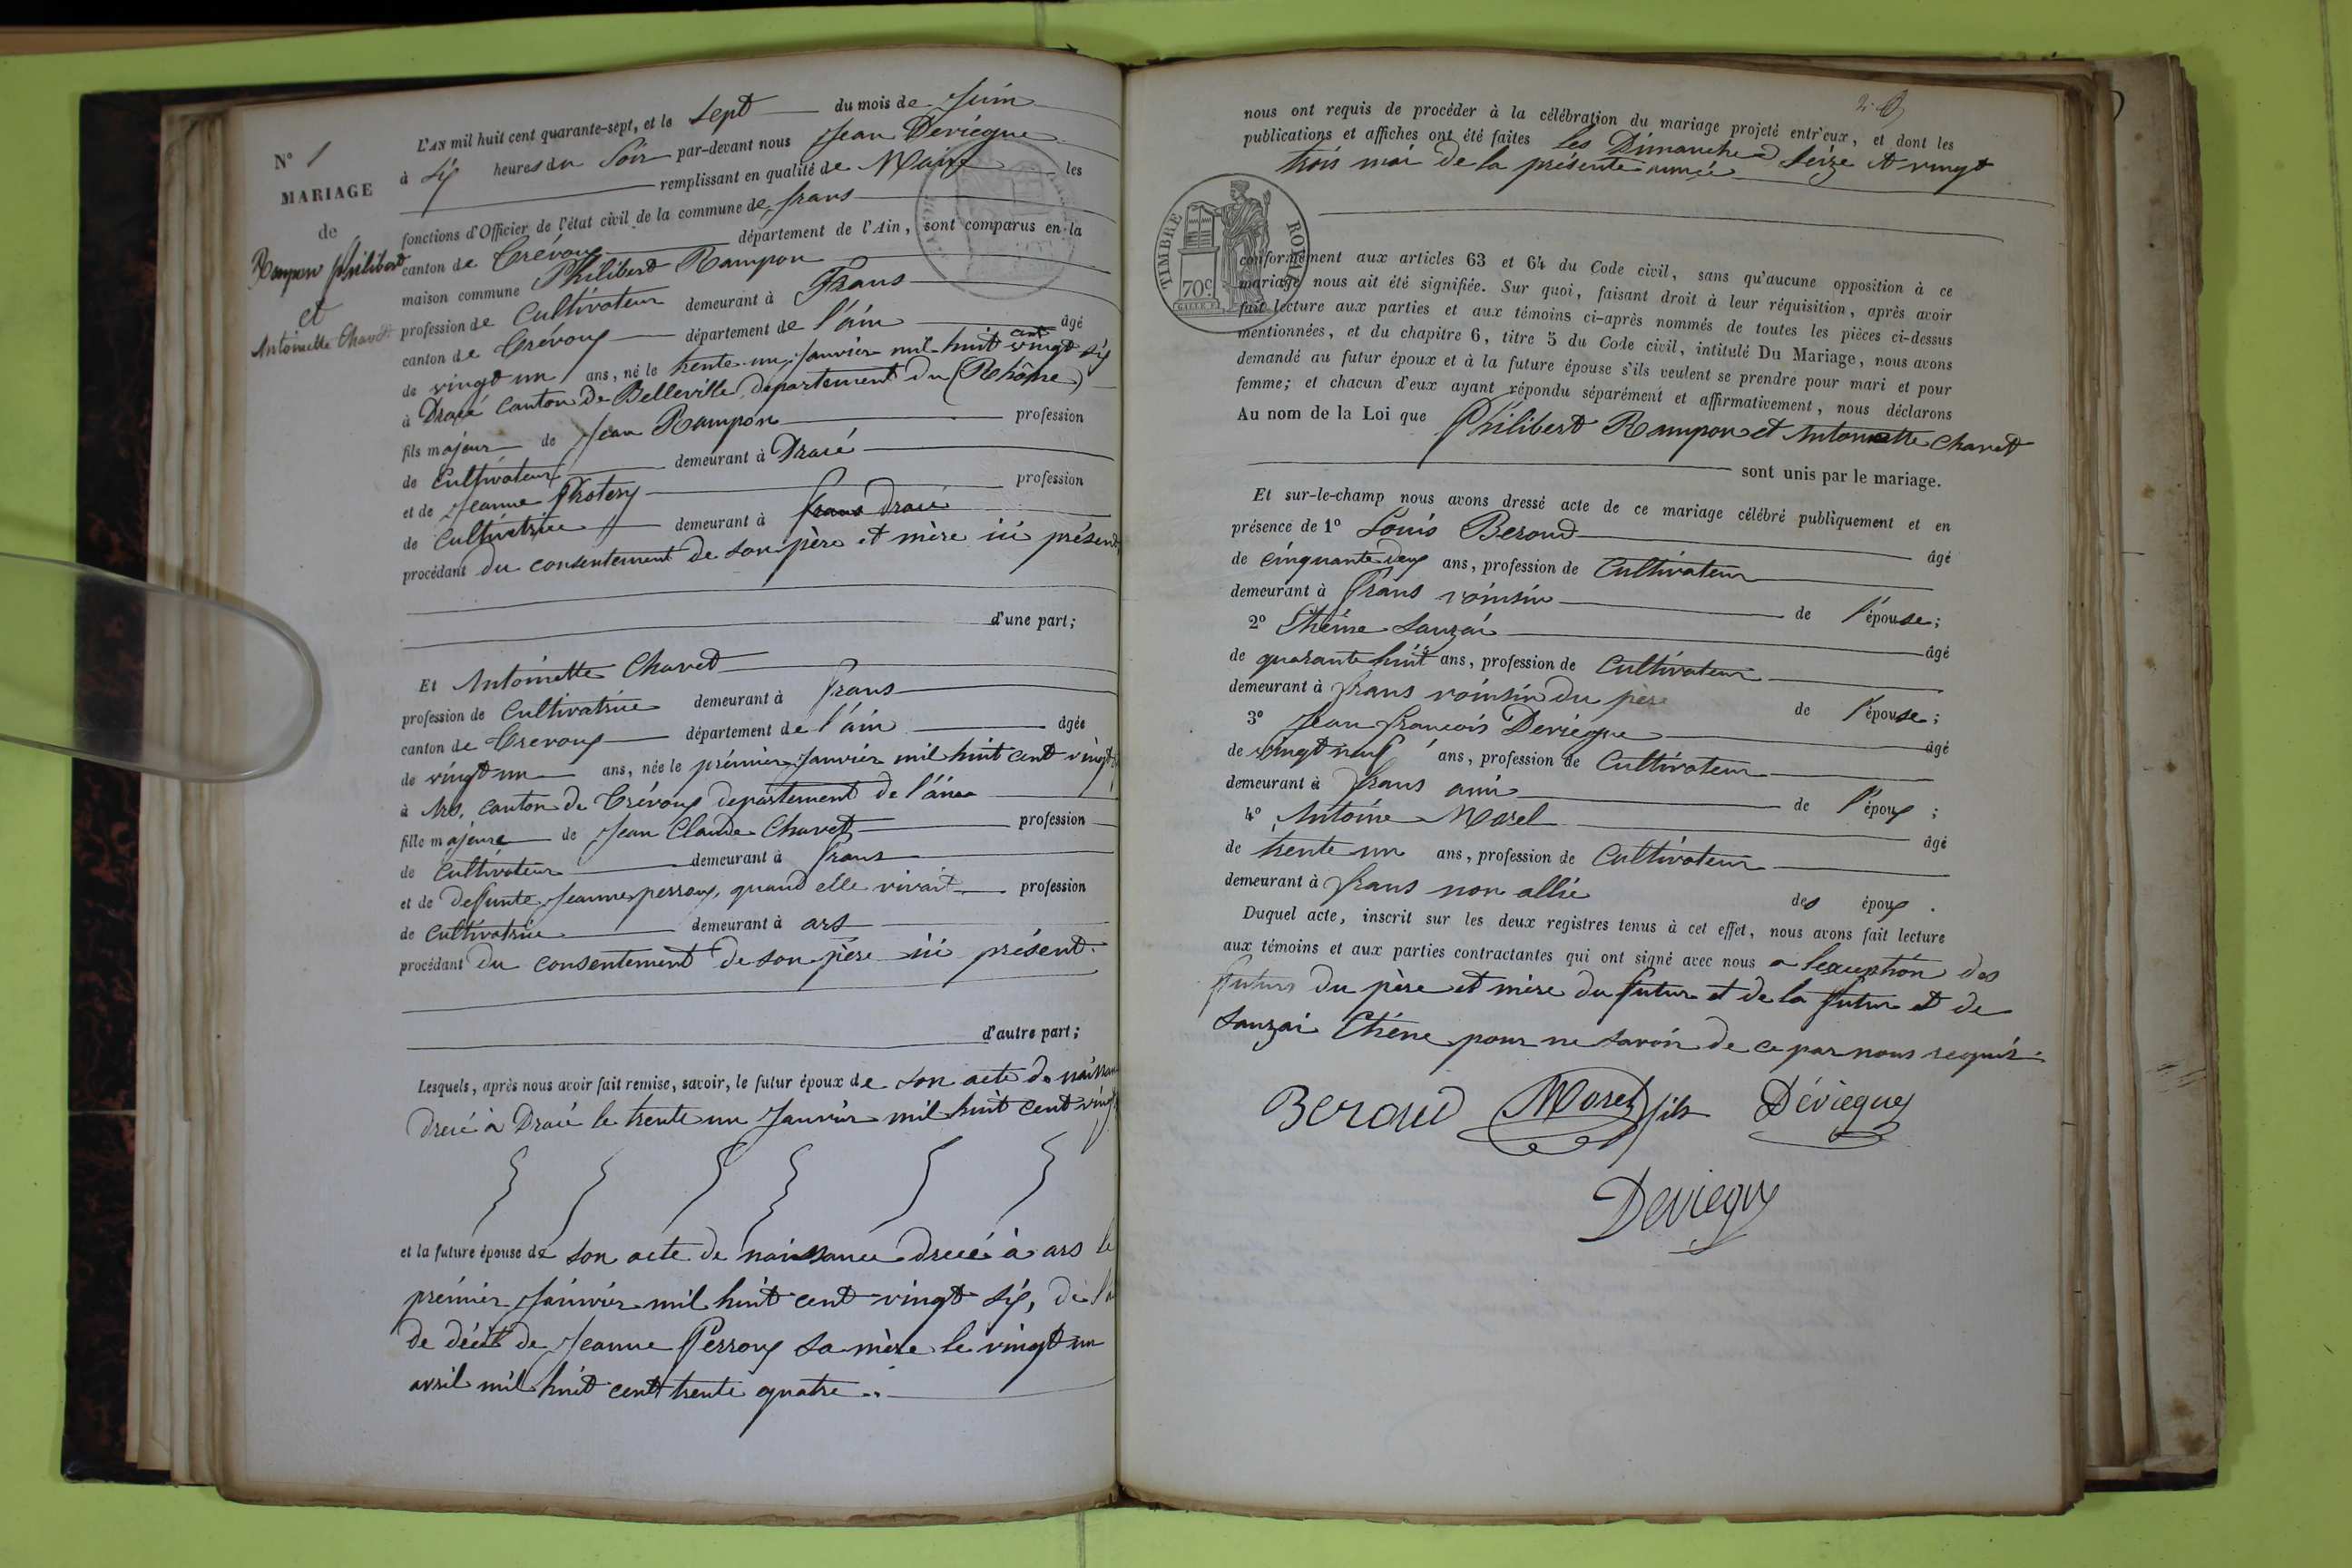 N° 1
MARIAGE
de
Rampon philibert
et
Antoinette Chavet
L'AN mil huit cent quarante-sept, et le sept du mois de Juin
à six heures du soir par-devant nous Jean Deviègue
remplissant en qualité de Maire les
fonctions d'Officier de l'état civil de la commune de frans
canton de Trévoux département de l'Ain, sont comparus en la
maison commune Philibert Rampon
profession de Cultivateur demeurant à Frans
canton de Trévoux département de l'ain âgé
de vingt un ans, né le trente un Janvier mil huit cent vingt six
à Dracé canton de Belleville département du (Rhône)
fils majeur de Jean Rampon profession
de Cultivateur demeurant à Dracé
et de Jeanne Protery profession
de Cultivatrice demeurant à frans dracé
procédant du consentement de son père et mère ici présent
d'une part;
Et Antoinette Chavet
profession de Cultivatrice demeurant à frans
canton de Trevoux département de l'ain âgée
de vingt un ans, née le prémier Janvier mil huit cent vingt
à Ars, canton de Trévoux département de l'ain
fille majeure de Jean Claude Chavet profession
de Cultivateur demeurant à frans
et de deffunte Jeanne perroux, quand elle vivait profession
de Cultivatrice demeurant à ars
procédant du consentement de son père ici présent
d'autre part;
Lesquels, après nous avoir fait remise, savoir, le futur époux de son acte de naissan
drecé à Dracé le trente un Janvier mil huit cent vingt
et la future épouse de son acte de naissance drecé à ars le
prémier Janvier mil huit cent vingt six, de l'a
de décès de Jeanne Perroux sa mère le vingt un
avril mil huit cent trente quatre
nous ont requis de procéder à la célébration du mariage projeté entr'eux, et dont les
publications et affiches ont été faites les Dimanches seize et vingt
trois mai de la présente année
TIMBRE ROYAL
70c
conformément aux articles 63 et 64 du Code civil, sans qu'aucune opposition à ce
mariage nous ait été signifiée. Sur quoi, faisant droit à leur réquisition, après avoir
fait lecture aux parties et aux témoins ci-après nommés de toutes les pièces ci-dessus
mentionnées, et du chapitre 6, titre 5 du Code civil, intitulé Du Mariage, nous avons
demandé au futur époux et à la future épouse s'ils veulent se prendre pour mari et pour
femme; et chacun d'eux ayant répondu séparément et affirmativement, nous déclarons
Au nom de la Loi que Philibert Rampon et Antoinette Chavet
sont unis par le mariage.
Et sur-le-champ nous avons dressé acte de ce mariage célébré publiquement et en
présence de 1° Louis Beroud âgé
de cinquante deux ans, profession de Cultivateur
demeurant à Frans voinsin de l'épouse;
2° Théine Sauzai âgé
de quarante huit ans, profession de Cultivateur
demeurant à frans voinsin du père de l'épouse;
3° Jean francois Deviègue âgé
de vingt neuf ans, profession de Cultivateur
demeurant à frans ami de l'époux;
4° Antoine Morel âgé
de trente un ans, profession de Cultivateur
demeurant à frans non allié des époux.
Duquel acte, inscrit sur les deux registres tenus à cet effet, nous avons fait lecture
aux témoins et aux parties contractantes qui ont signé avec nous a lexception des
futurs du père et mère du futur et de la futur et de
Sauzai Théne pour ne savoir de ce par nous requis.
Beroud Morel fils Déviegue
Deviegue